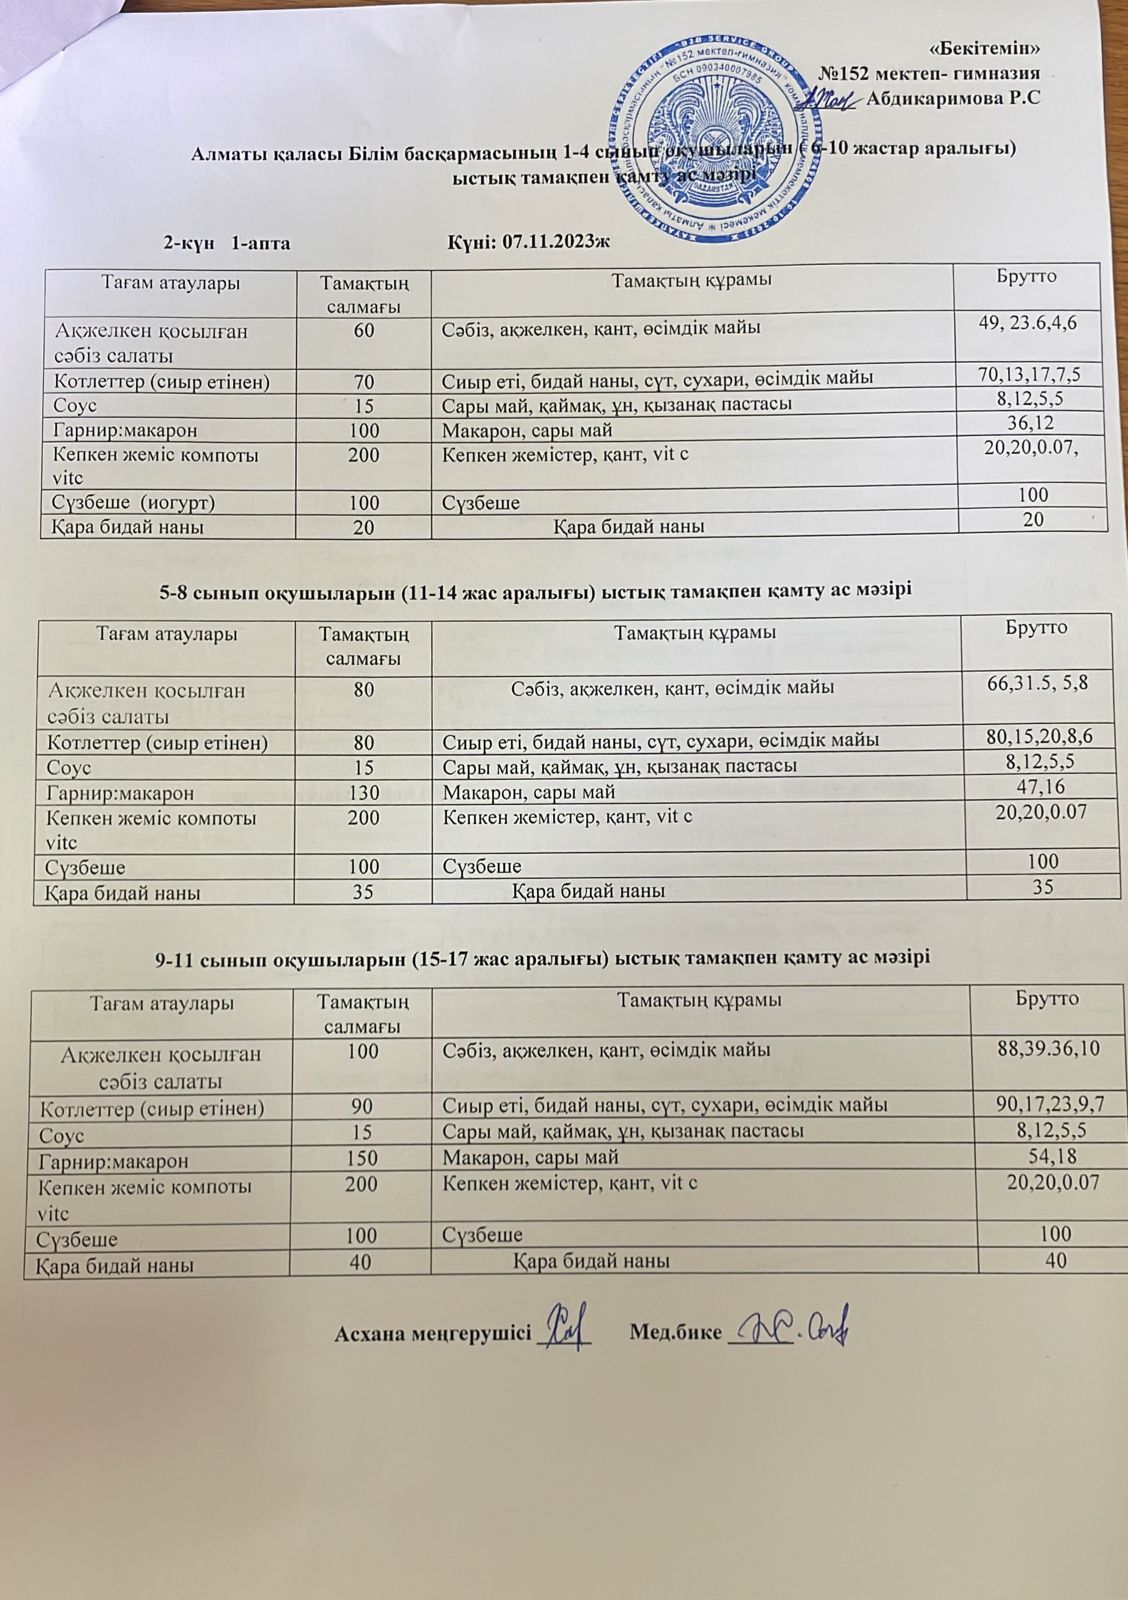 «Бекітемін»
№152 мектеп- гимназия
Абдикаримова Р.С
Алматы қаласы Білім басқармасының 1-4 сынып оқушыларын ( 6-10 жастар аралығы)
ыстық тамақпен қамту ас мәзірі
2-күн 1-апта Күні: 07.11.2023ж
Тағам атаулары Тамақтың салмағы Тамақтың құрамы Брутто
Ақжелкен қосылған сәбіз салаты 60 Сәбіз, ақжелкен, қант, өсімдік майы 49, 23.6,4,6
Котлеттер (сиыр етінен) 70 Сиыр еті, бидай наны, сүт, сухари, өсімдік майы 70,13,17,7,5
Соус 15 Сары май, қаймақ, ұн, қызанақ пастасы 8,12,5,5
Гарнир:макарон 100 Макарон, сары май 36,12
Кепкен жеміс компоты vitc 200 Кепкен жемістер, қант, vit c 20,20,0.07,
Сүзбеше (иогурт) 100 Сүзбеше 100
Қара бидай наны 20 Қара бидай наны 20
5-8 сынып оқушыларын (11-14 жас аралығы) ыстық тамақпен қамту ас мәзірі
Тағам атаулары Тамақтың салмағы Тамақтың құрамы Брутто
Ақжелкен қосылған сәбіз салаты 80 Сәбіз, ақжелкен, қант, өсімдік майы 66,31.5, 5,8
Котлеттер (сиыр етінен) 80 Сиыр еті, бидай наны, сүт, сухари, өсімдік майы 80,15,20,8,6
Соус 15 Сары май, қаймақ, ұн, қызанақ пастасы 8,12,5,5
Гарнир:макарон 130 Макарон, сары май 47,16
Кепкен жеміс компоты vitc 200 Кепкен жемістер, қант, vit c 20,20,0.07
Сүзбеше 100 Сүзбеше 100
Қара бидай наны 35 Қара бидай наны 35
9-11 сынып оқушыларын (15-17 жас аралығы) ыстық тамақпен қамту ас мәзірі
Тағам атаулары Тамақтың салмағы Тамақтың құрамы Брутто
Ақжелкен қосылған сәбіз салаты 100 Сәбіз, ақжелкен, қант, өсімдік майы 88,39.36,10
Котлеттер (сиыр етінен) 90 Сиыр еті, бидай наны, сүт, сухари, өсімдік майы 90,17,23,9,7
Соус 15 Сары май, қаймақ, ұн, қызанақ пастасы 8,12,5,5
Гарнир:макарон 150 Макарон, сары май 54,18
Кепкен жеміс компоты vitc 200 Кепкен жемістер, қант, vit c 20,20,0.07
Сүзбеше 100 Сүзбеше 100
Қара бидай наны 40 Қара бидай наны 40
Асхана меңгерушісі Мед.бике